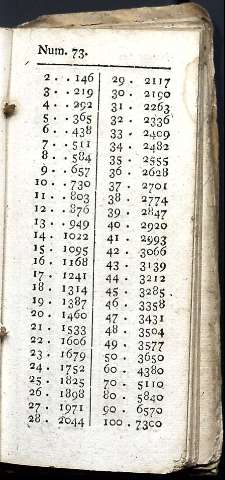 Num. 73.
2 . . 146
3 . . 219
4 . . 292
5 . . 365
6 . . 438
7 . . 511
8 . . 584
9 . . 657
10 . . 730
11 . . 803
12 . . 876
13 . . 949
14 . 1022
15 . 1095
16 . 1168
17 . 1241
18 . 1314
19 . 1387
20 . 1460
21 . 1533
22 . 1606
23 . 1679
24 . 1752
25 . 1825
26 . 1898
27 . 1971
28 . 2044
29 . 2117
30 . 2190
31 . 2263
32 . 2336
33 . 2409
34 . 2482
35 . 2555
36 . 2628
37 . 2701
38 . 2774
39 . 2847
40 . 2920
41 . 2993
42 . 3066
43 . 3139
44 . 3212
45 . 3285
46 . 3358
47 . 3431
48 . 3504
49 . 3577
50 . 3650
60 . 4380
70 . 5110
80 . 5840
90 . 6570
100 . 7300